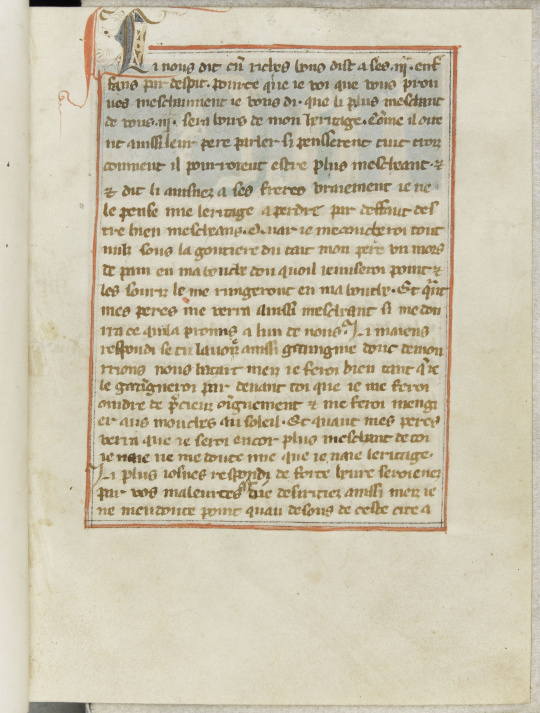 Li nous dit cun riches hons dist a ses .iij. enf
fans par despit. pource que ie voi que vous prou
ues meschamment ie vous di. que li plus meschant
de vous .iij. sera hoirs de mon heritage. Come il oie
nt ainssi leur pere parler si penserent tuit troi
comment il pourroient estre plus meschant. &
& dit li ainsnez a ses freres vraiement ie ne
le pense mie leritage a perdre par deffaut des
tre bien meschans. Quar ie me coucheroi tout
nuis sous la goutiere du tait mon pere un mors
de pain en ma bouche dou quoil ie nuseroi point &
les souris le me rungeront en ma bouche. Et qnt
mes peres me verra ainssi meschant si me don
rra ce quil a promis a lun de nous. Li maiens
respondi se tu lauoies ainssi gaaingnie donc demou
rrions nous bacart mes ie feroi bien tant que ie
le gaaigneroi par deuant toi que ie me feroi
oindre de pcieus oignement & me feroi mengi
er aus mouches au soleil. Et quant mes peres
verra que ie seroi encor plus meschant de toi
ie naie ne me doute mie que ie naie leritage.
Li plus iosnes respondi de forte heure seroienez
par vos maleurtes due desirtier ainssi mes ie
ne men doute point quau desous de ceste cite a